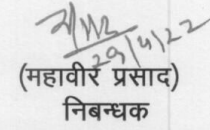 29/4/22
(महावीर प्रसाद)
निबन्धक